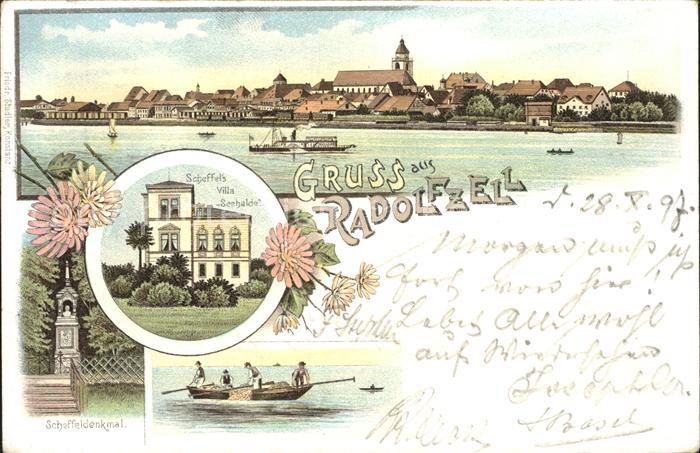 Friedr. Stadler, Konstanz
GRUSS aus
RADOLFZELL
Scheffel's
Villa
"Seehalde".
Scheffeldenkmal.
d. 28. X. 97.
Morgen muß ich
fort von hier!
Lebet Alle wohl
auf Wiedersehen
Basel